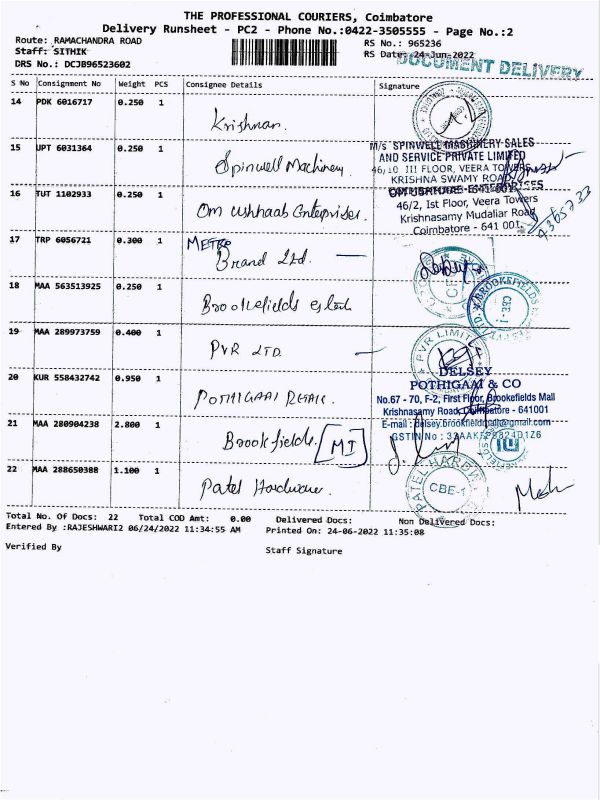 THE PROFESSIONAL COURIERS, Coimbatore
Delivery Runsheet - PC2 - Phone No.:0422-3505555 - Page No.:2
Route: RAMACHANDRA ROAD
Staff: SITHIK
DRS No.: DCJB96523602
RS No.: 965236
RS Date: 24-Jun-2022
DOCUMENT DELIVERY
S No Consignment No Weight PCS Consignee Details Signature
14 PDK 6016717 0.250 1 Krishnan.
15 UPT 6031364 0.250 1 Spinwell Machinery
M/s SPINWELL MACHINERY SALES
AND SERVICE PRIVATE LIMITED
46/10 III FLOOR, VEERA TOWERS
KRISHNA SWAMY ROAD
16 TUT 1102933 0.250 1 Om Ushhaab Enterprises.
46/2, Ist Floor, Veera Towers
Krishnasamy Mudaliar Road
Coimbatore - 641 001.
17 TRP 6056721 0.300 1 METRO
Brand Ltd.
18 MAA 563513925 0.250 1 Brookefields
BROOKEFIELDS
CBE-1
19 MAA 289973759 0.400 1 PVR LTD.
PVR LIMITED
20 KUR 558432742 0.950 1 POTHIGAAI
DELSEY
POTHIGAAI & CO
No.67 - 70, F-2, First Floor, Brookefields Mall
Krishnasamy Road, Coimbatore - 641001
E-mail : delsey.brookfieldmall@gmail.com
GSTIN No :
21 MAA 280904238 2.800 1 Brookfields. MI
22 MAA 288650388 1.100 1 Patel Hardware.
PATEL HARDW
CBE-1
Total No. Of Docs: 22 Total COD Amt: 0.00 Delivered Docs: Non Delivered Docs:
Entered By :RAJESHWARI2 06/24/2022 11:34:55 AM Printed On: 24-06-2022 11:35:08
Verified By Staff Signature